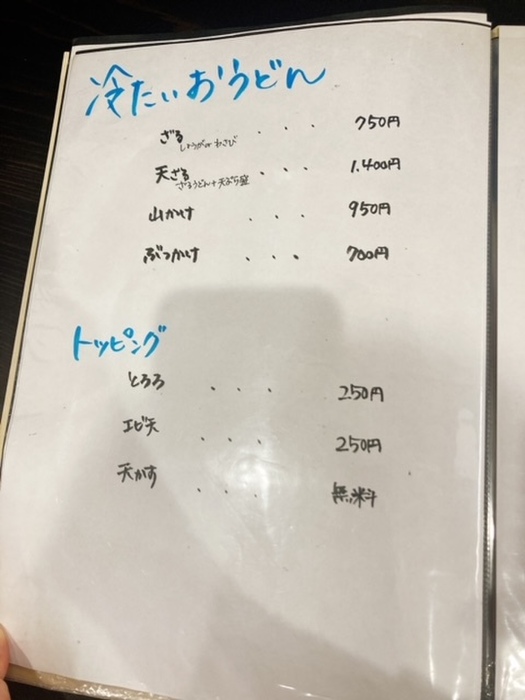 冷たいおうどん
ざる ・・・ 750円
しょうがorわさび
天ざる ・・・ 1.400円
ざるうどん+天ぷら盛
山かけ ・・・ 950円
ぶっかけ ・・・ 700円
トッピング
とろろ ・・・ 250円
エビ天 ・・・ 250円
天かす ・・・ 無料